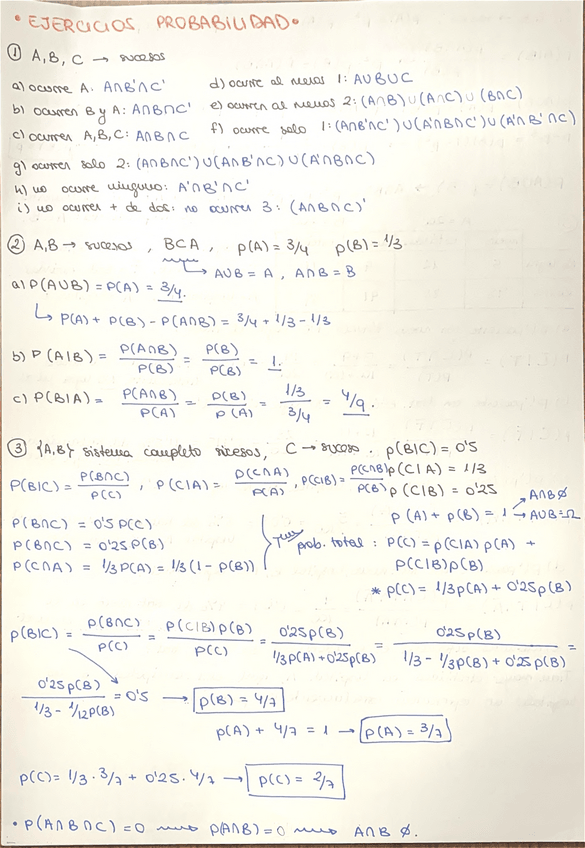 • EJERCICIOS PROBABILIDAD •
① A, B, C → sucesos
a) ocurre A: A∩B'∩C' d) ocurre al menos 1: A∪B∪C
b) ocurren B y A: A∩B∩C' e) ocurren al menos 2: (A∩B)∪(A∩C)∪(B∩C)
c) ocurren A, B, C: A∩B∩C f) ocurre solo 1: (A∩B'∩C')∪(A'∩B∩C')∪(A'∩B'∩C)
g) ocurren solo 2: (A∩B∩C')∪(A∩B'∩C)∪(A'∩B∩C)
h) no ocurre ninguno: A'∩B'∩C'
i) no ocurren + de dos: no ocurren 3: (A∩B∩C)'
② A,B → sucesos, B⊂A, p(A) = 3/4 p(B) = 1/3
→ A∪B = A, A∩B = B
a) P(A∪B) = P(A) = 3/4.
↳ P(A) + P(B) - P(A∩B) = 3/4 + 1/3 - 1/3
b) P(A|B) = P(A∩B)/P(B) = P(B)/P(B) = 1.
c) P(B|A) = P(A∩B)/P(A) = P(B)/P(A) = 1/3/3/4 = 4/9.
③ {A,B} sistema completo sucesos, C → suceso. p(B|C) = 0'5
P(B|C) = P(B∩C)/P(C), P(C|A) = P(C∩A)/P(A), P(C|B) = P(C∩B)/P(B) p(C|A) = 1/3
p(C|B) = 0'25
p(A) + p(B) = 1 → A∩B ∅ → A∪B = Ω
P(B∩C) = 0'5 P(C)
P(B∩C) = 0'25 P(B)
P(C∩A) = 1/3 P(A) = 1/3 (1 - P(B))
prob. total: P(C) = p(C|A) p(A) +
P(C|B) p(B)
* p(C) = 1/3 p(A) + 0'25 p(B)
p(B|C) = p(B∩C)/p(C) = p(C|B) p(B)/p(C) = 0'25 p(B)/1/3 p(A) + 0'25 p(B) = 0'25 p(B)/1/3 - 1/3 p(B) + 0'25 p(B) =
0'25 p(B)/1/3 - 1/12 p(B) = 0'5 → p(B) = 4/7
p(A) + 4/7 = 1 → p(A) = 3/7
p(C) = 1/3 · 3/7 + 0'25 · 4/7 → p(C) = 2/7
• P(A∩B∩C) = 0 → p(A∩B) = 0 → A∩B ∅.